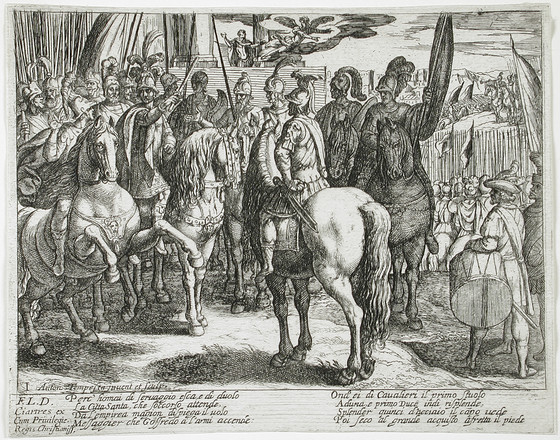 1. Anton. Tempest. inuent et sculpsi.
F.L.D.
Ciartres ex
Cum Priuilegio
Regis Christianiss.
Perc' homai di seruaggio esca, e di duolo
La Città Santa, che soccorso attende
Da l'empirea magion, dispiega il uolo
Messaggier che Goffredo a l'armi accende
Ond' ei di Caualieri il primo stuolo
Aduna, e primo Duce indi risplende,
Splender quinci d'acciaio il capo uede
Poi seco al grande acquisto affretta il piede